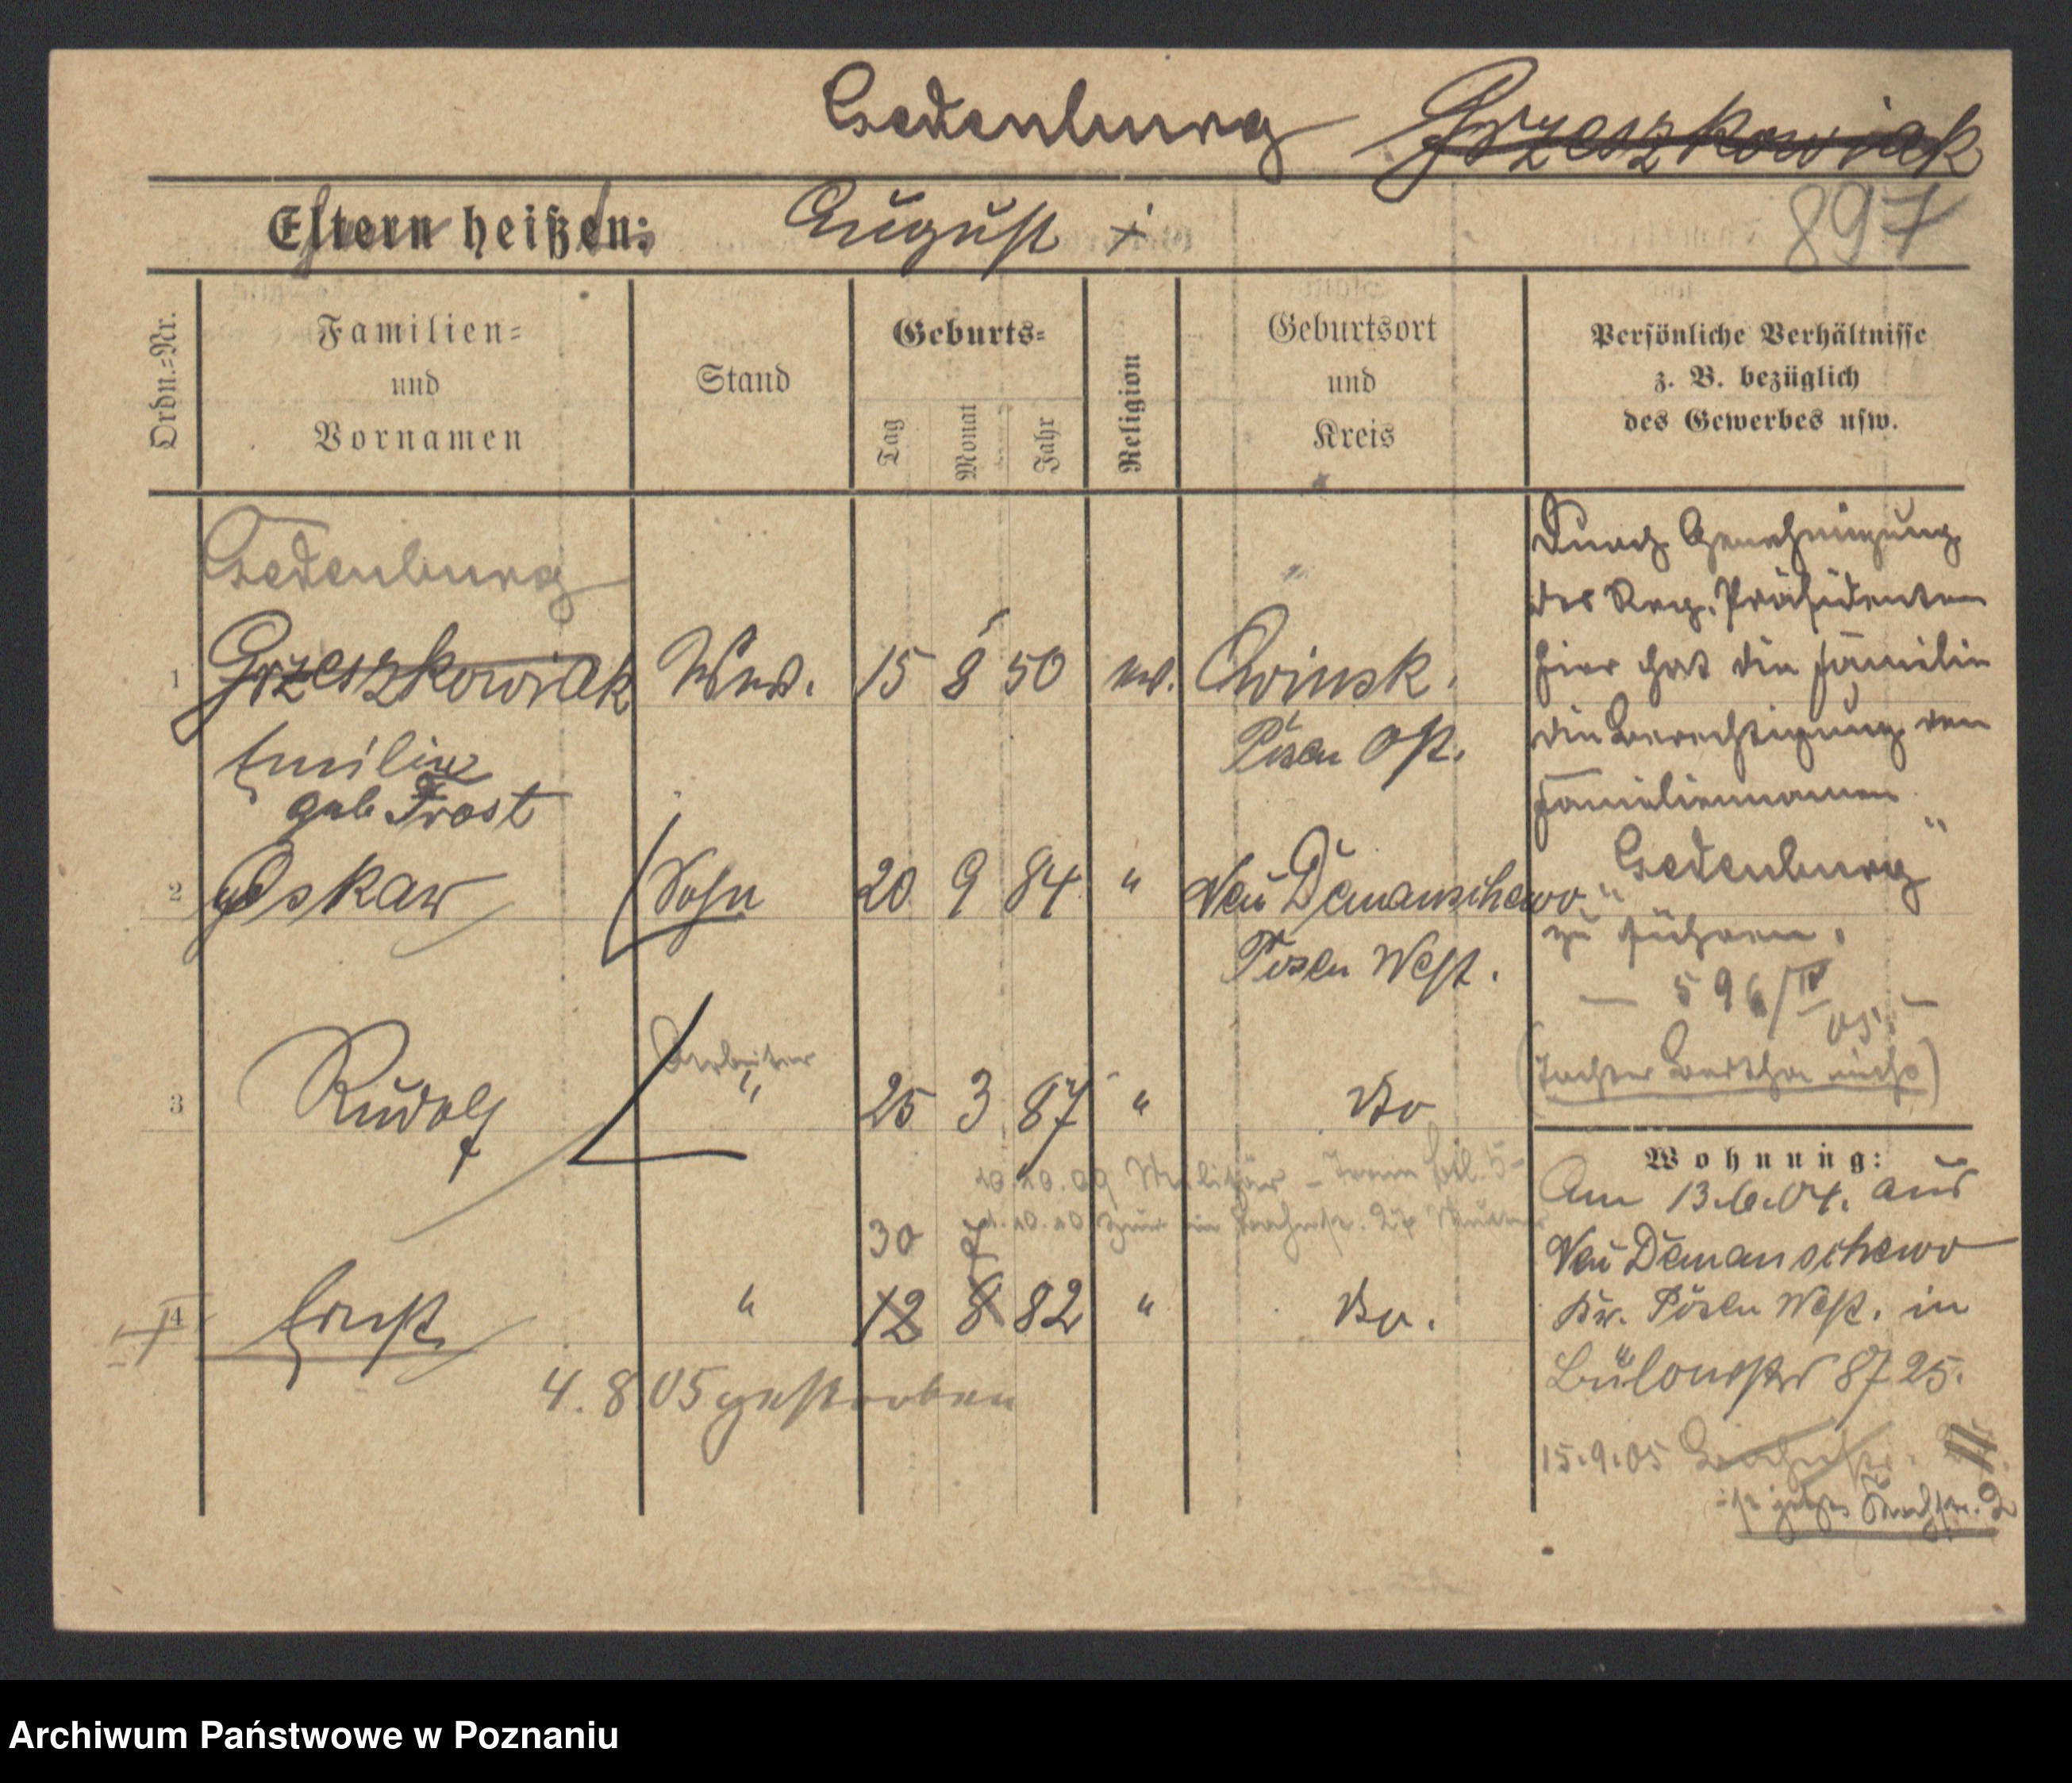 Gedenburg Grzeszkowiak
Eltern heißen: August +
897
Ordn.=Nr.
Familien=
und
Vornamen
Stand
Geburts=
Tag
Monat
Jahr
Religion
Geburtsort
und
Kreis
Persönliche Verhältnisse
z. B. bezüglich
des Gewerbes usw.
Gedenburg
1 Grzeszkowiak Wwe. 15 8 50 ev. Owinsk.
Emilie Posen Ost.
geb Frost
2 Oskar Sohn 20 9 84 " Neu Demanschewo
Posen West.
Arbeiter
3 Rudolf " 25 3 87 " do
Militär - Train Btl. 5
30 7
4 Ernst " 12 8 82 " do.
4. 8 05 gestorben
Durch Genehmigung
des Reg. Präsidenten
hier hat die Familie
die Berechtigung den
Familiennamen
"Gedenburg"
zu führen.
— 596/IV 05. —
(Tochter Bertha nicht)
Wohnung:
Am 13.6.04. aus
Neu Demanschewo
Kr. Posen West. in
Bülowstr 87 25.
15.9.05
ist jetzt 2